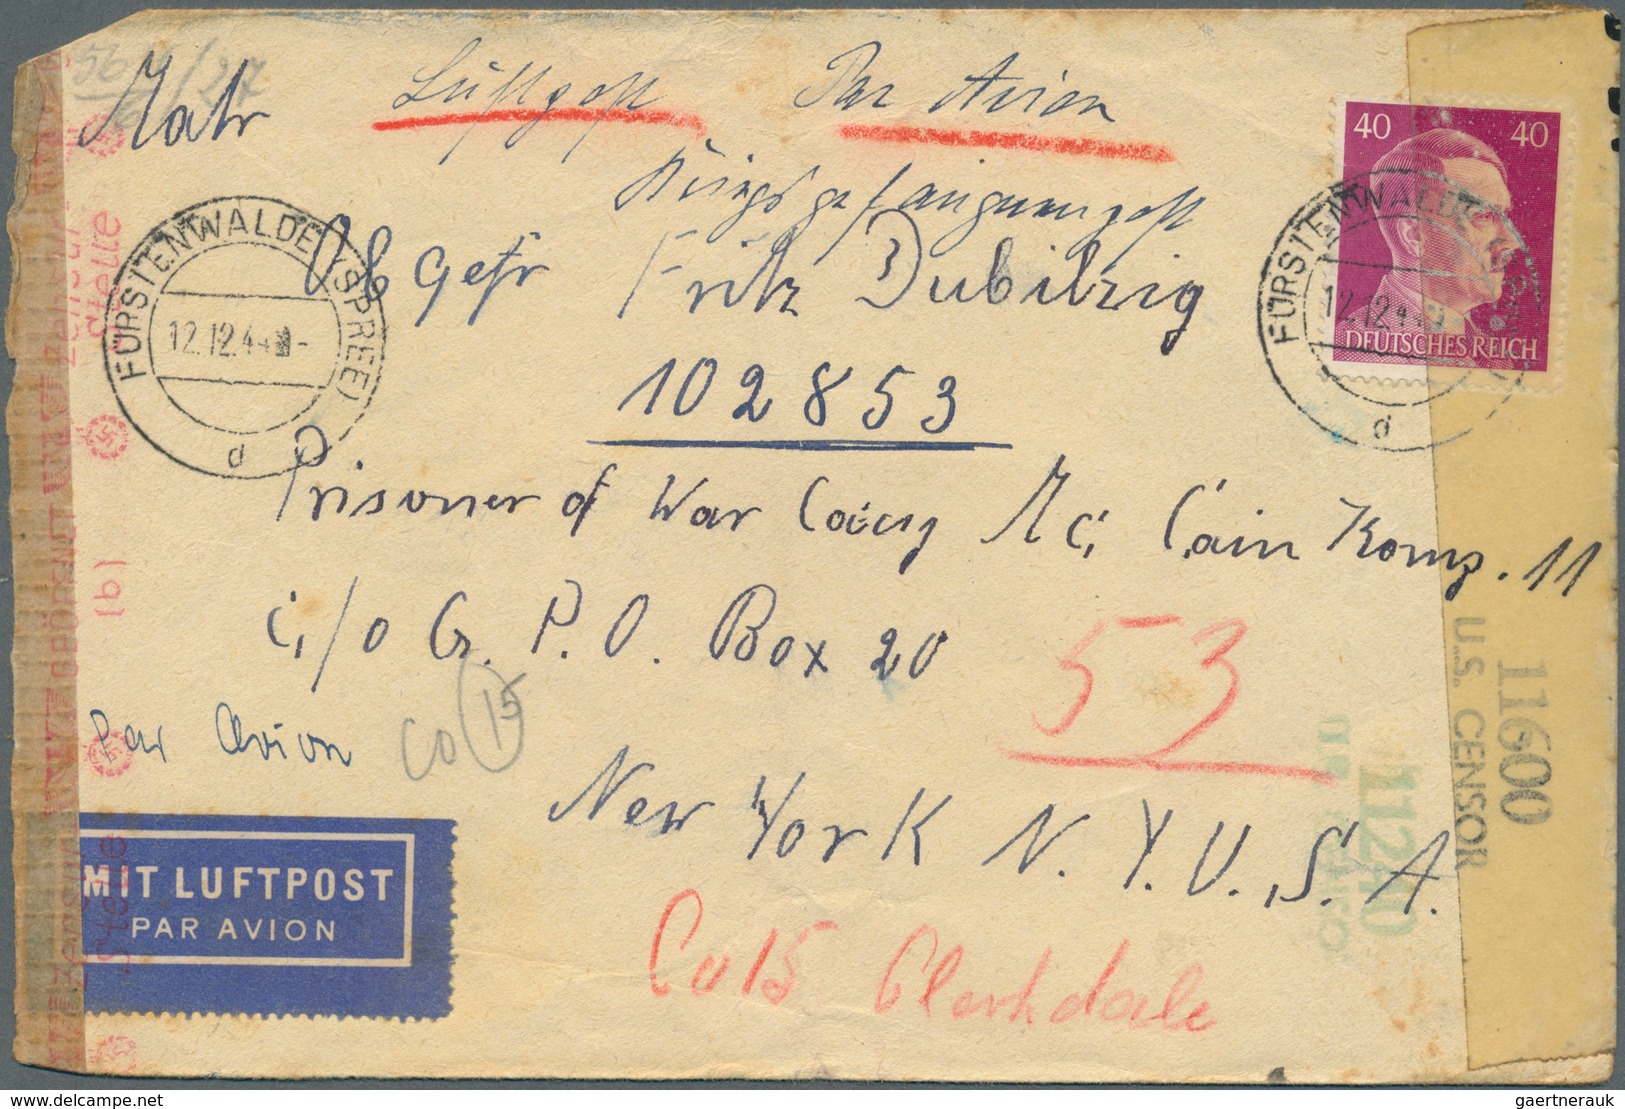 Luftpost Par Avion
Kriegsgefangenenpost
40 40
DEUTSCHES REICH
FÜRSTENWALDE (SPREE)
12.12.44
d
FÜRSTENWALDE (SPREE)
12.12.44
d
Obgefr Fritz Dubilzig
102853
Prisoner of War Camp Mc Cain Komp. 11
c/o G. P. O. Box 20
53
Par Avion
CO 15
New York N. Y. U. S. A.
MIT LUFTPOST
PAR AVION
Co 15 Clarkdale
(b)
Stelle
Stelle
U.S. CENSOR
11600
11240
delcampe.net
gaertnerauk